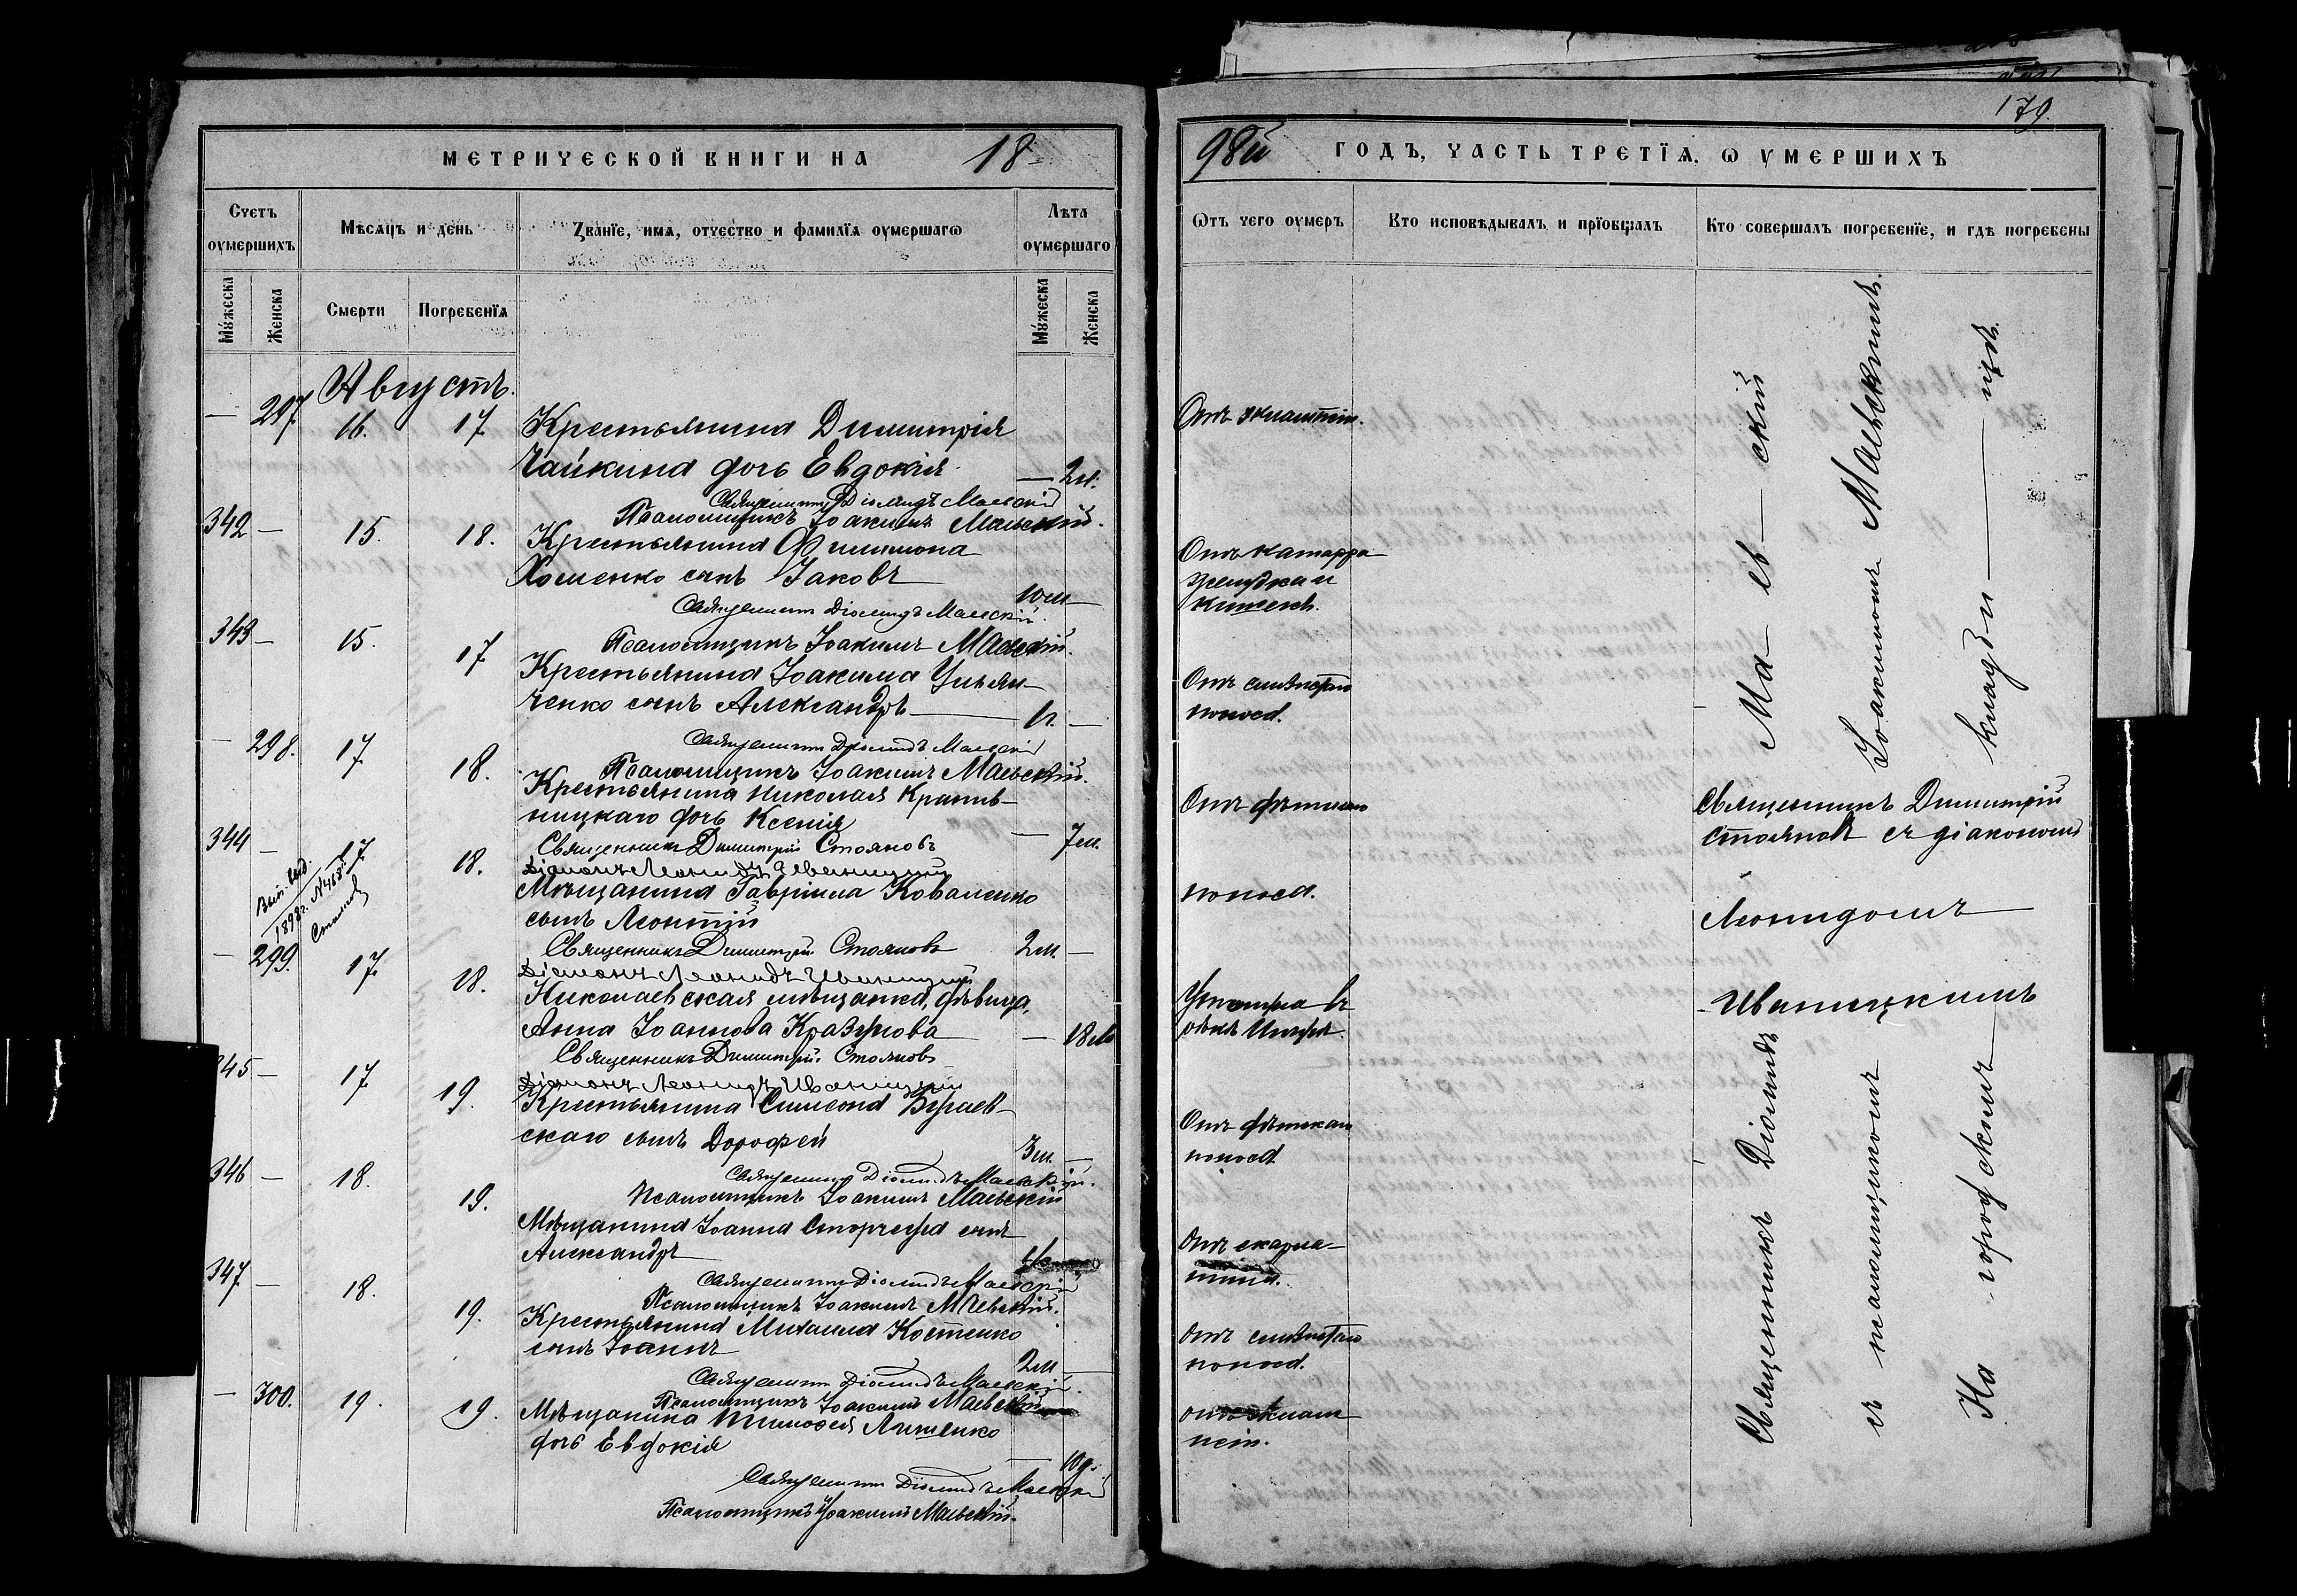 МЕТРИЧЕСКОЙ КНИГИ НА 18
Счетъ оумершихъ
Мѣсяцъ и день
Званіе, имя, отчество и фамилія оумершаго
Лѣта оумершаго
Мужеска
Женска
Смерти
Погребенія
Мужеска
Женска
Августъ.
— 297. 16. 17 Крестьянина Димитрія
Чайкина дочь Евдокія — 2м.
Священникъ Діомидъ Маевскій
Псаломщикъ Іоакимъ Маевскій.
342 — 15. 18. Крестьянина Филимона
Хоменко сынъ Іаковъ 10м —
Священникъ Діомидъ Маевскій.
Псаломщикъ Іоакимъ Маевскій.
343 — 15. 17 Крестьянина Іоакима Ульян-
ченко сынъ Александръ 1г. —
Священникъ Діомидъ Маевскій
Псаломщикъ Іоакимъ Маевскій.
— 298. 17 18. Крестьянина Николая Крапив-
ницкаго дочь Ксенія — 7м.
Священникъ Димитрій Стояновъ
Діаконъ Леонидъ Иваницкій
344 — 17. 18. Мѣщанина Гавріила Коваленко
сынъ Леонтій 2м. —
Вып. выд.
1898г. № 468
Стоянов
Священникъ Димитрій Стояновъ
Діаконъ Леонидъ Иваницкій
— 299. 17. 18. Николаевская мѣщанка, дѣвица,
Анна Іоаннова — 18л.
Священникъ Димитрій Стояновъ
Діаконъ Леонидъ Иваницкій
345 — 17 19. Крестьянина Симеона
скаго сынъ Дорофей 3м. —
Священникъ Діомидъ Маевскій.
Псаломщикъ Іоакимъ Маевскій
346 — 18. 19. Мѣщанина Іоанна сынъ
Александръ
Священникъ Діомидъ Маевскій
Псаломщикъ Іоакимъ Маевскій.
347 — 18. 19. Крестьянина Михаила Костенко
сынъ Іоаннъ 2м —
Священникъ Діомидъ Маевскій.
Псаломщикъ Іоакимъ Маевскій
— 300. 19. 19. Мѣщанина Тимофея
дочь Евдокія — 10д.
Священникъ Діомидъ Маевскій
Псаломщикъ Іоакимъ Маевскій.
179.
98й ГОДЪ, ЧАСТЬ ТРЕТІЯ, О УМЕРШИХЪ
Отъ чего оумеръ
Кто исповѣдывалъ и пріобщалъ
Кто совершалъ погребеніе, и гдѣ погребены
Отъ эклампсіи.
Отъ катарра
желудка и
кишекъ.
Отъ слизистаго
поноса.
Отъ дѣтскаго
поноса.
Утонула въ
рѣкѣ Ингулѣ.
Отъ дѣтскаго
поноса
Отъ скарла-
тины.
Отъ слизистаго
поноса.
Отъ эклам
псіи.
Священникъ Димитрій
Стояновъ съ діакономъ
Леонидомъ
Иваницкимъ
Священникъ Діомидъ Маевскій
съ псаломщикомъ Іоакимомъ Маевскимъ.
На городскомъ кладбищѣ.